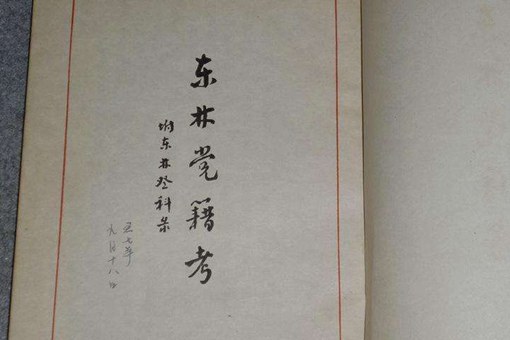 东林党籍考
坿东林登科录
五七年
九月十八日